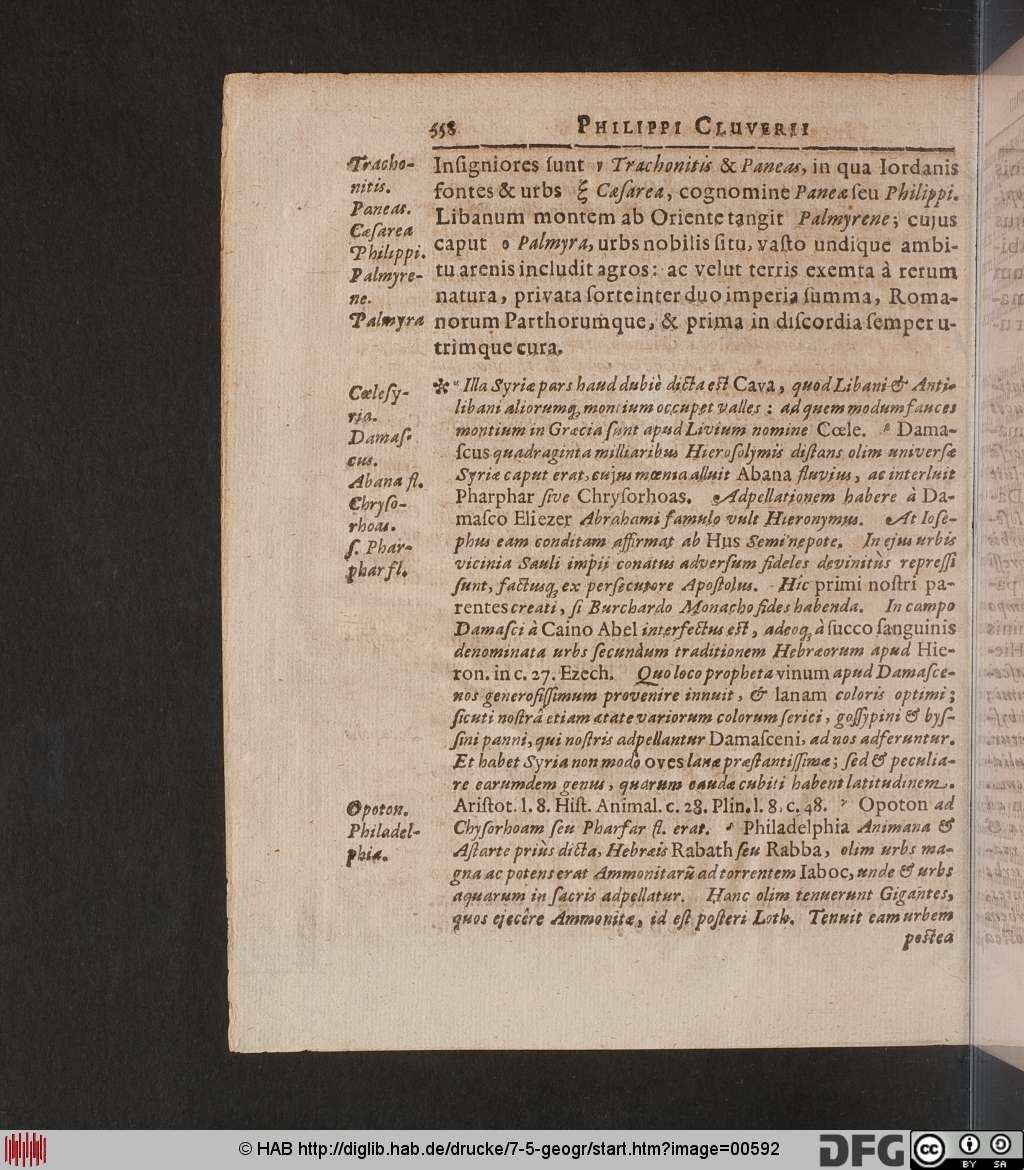 558 PHILIPPI CLUVERII
Tracho-
nitis.
Paneas.
Cæſarea
Philippi.
Palmyre-
ne.
Palmyra
Inſigniores ſunt ν Trachonitis & Paneas, in qua Iordanis
fontes & urbs ξ Cæſarea, cognomine Paneæ ſeu Philippi.
Libanum montem ab Oriente tangit Palmyrene; cujus
caput ο Palmyra, urbs nobilis ſitu, vaſto undique ambi-
tu arenis includit agros: ac velut terris exemta à rerum
natura, privata ſorte inter duo imperia ſumma, Roma-
norum Parthorumque, & prima in diſcordia ſemper u-
trimque cura.
Cœleſy-
ria.
Damaſ-
cus.
Abana fl.
Chryſo-
rhoas.
ſ. Phar-
phar fl.
Opoton.
Philadel-
phia.
* Illa Syriæ pars haud dubiè dicta est Cava, quod Libani & Anti-
libani aliorumq; montium occupet valles: ad quem modum fauces
montium in Græcia ſunt apud Livium nomine Cœle. Dama-
ſcus quadraginta milliaribus Hieroſolymis diſtans olim univerſæ
Syriæ caput erat, cujus mœnia alluit Abana fluvius, ac interluit
Pharphar ſive Chryſorhoas. Adpellationem habere à Da-
maſco Eliezer Abrahami famulo vult Hieronymus. At Ioſe-
phus eam conditam affirmat ab Hus Semi nepote. In ejus urbis
vicinia Sauli impii conatus adverſum fideles devinitùs repreſſi
ſunt, factusq; ex perſecutore Apoſtolus. Hîc primi noſtri pa-
rentes creati, ſi Burchardo Monacho fides habenda. In campo
Damaſci à Caino Abel interfectus est, adeoq; à ſucco ſanguinis
denominata urbs ſecundum traditionem Hebræorum apud Hie-
ron. in c. 27. Ezech. Quo loco propheta vinum apud Damaſce-
nos generoſiſſimum provenire innuit, & lanam coloris optimi;
ſicuti noſtrâ etiam ætate variorum colorum ſerici, goſſypini & byſ-
ſini panni, qui noſtris adpellantur Damaſceni, ad nos adferuntur.
Et habet Syria non modo oves lanæ præſtantiſſimæ; ſed & peculia-
re earumdem genus, quarum caudæ cubiti habent latitudinem.
Ariſtot. l. 8. Hiſt. Animal. c. 28. Plin. l. 8. c. 48. Opoton ad
Chyſorhoam ſeu Pharfar fl. erat. Philadelphia Animana &
Aſtarte priùs dicta, Hebræis Rabath ſeu Rabba, olim urbs ma-
gna ac potens erat Ammonitarũ ad torrentem Iaboc, unde & urbs
aquarum in ſacris adpellatur. Hanc olim tenuerunt Gigantes,
quos ejecêre Ammonitæ, id eſt poſteri Loth. Tenuit eam urbem
poſtea
© HAB http://diglib.hab.de/drucke/7-5-geogr/start.htm?image=00592
DFG
cc
BY SA